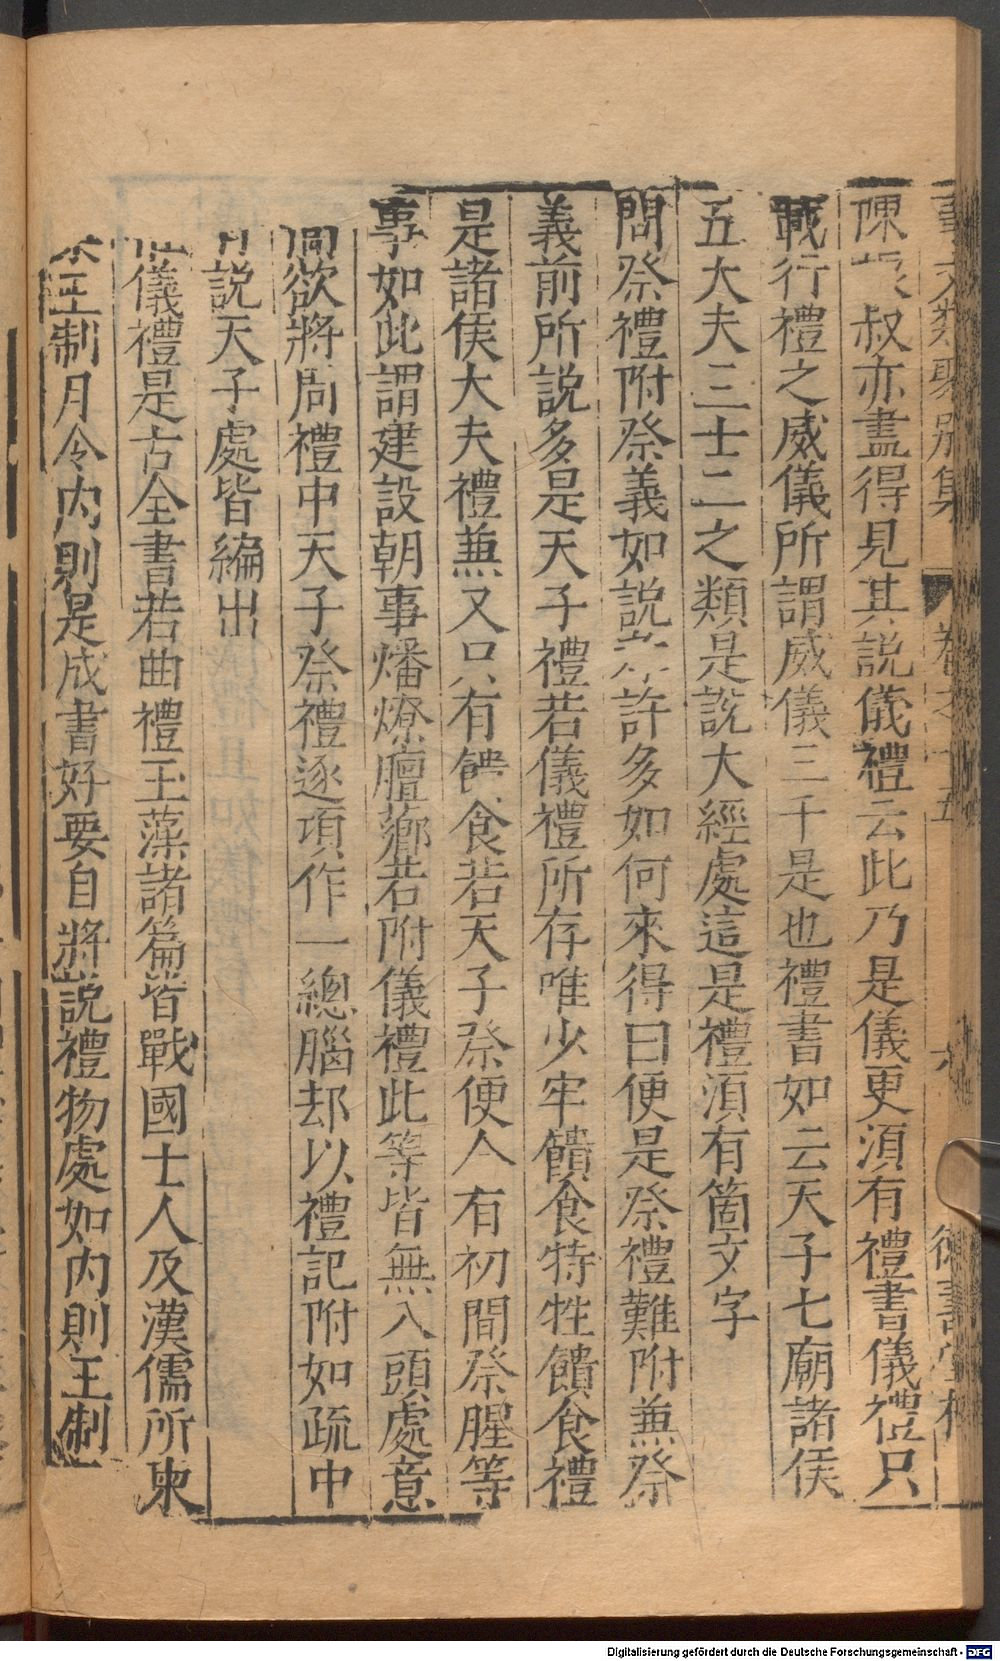 事文類聚別集 卷之十五 六 德壽堂梓
陳振叔亦盡得見其説儀禮云此乃是儀更湏有禮書儀禮只
載行禮之威儀所謂威儀三千是也禮書如云天子七廟諸侯
五大夫三士二之類是説大經處這是禮湏有箇文字
問祭禮附祭義如説許多如何來得曰便是祭禮難附兼祭
義前所説多是天子禮若儀禮所存唯少牢饋食特牲饋食禮
是諸侯大夫禮兼又只有饋食若天子祭便合有初間祭腥等
事如此謂建設朝事燔燎膻薌若附儀禮此等皆無入頭處意
間欲將周禮中天子祭禮逐項作一總腦却以禮記附如疏中
有説天子處皆編出
儀禮是古全書若曲禮玉藻諸篇皆戰國士人及漢儒所裒
集王制月令内則是成書好要自將説禮物處如内則王制
Digitalisierung gefördert durch die Deutsche Forschungsgemeinschaft - DFG